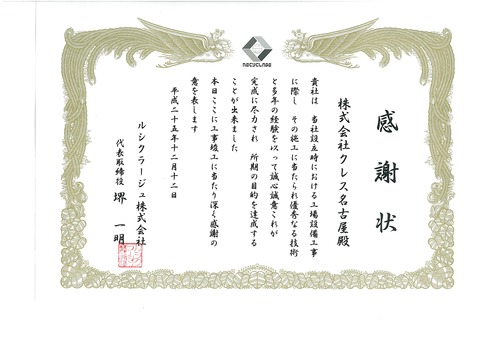 RECYCLAGE
感謝状
株式会社クレス名古屋殿
貴社は 当社設立時における工場設備工事
に際し その施工に当たられ優秀なる技術
と多年の経験を以って誠心誠意これが
完成に尽力され 所期の目的を達成する
ことが出来ました
本日ここに工事竣工に当たり深く感謝の
意を表します
平成二十五年十二月十二日
ルシクラージュ株式会社
代表取締役 堺 一明